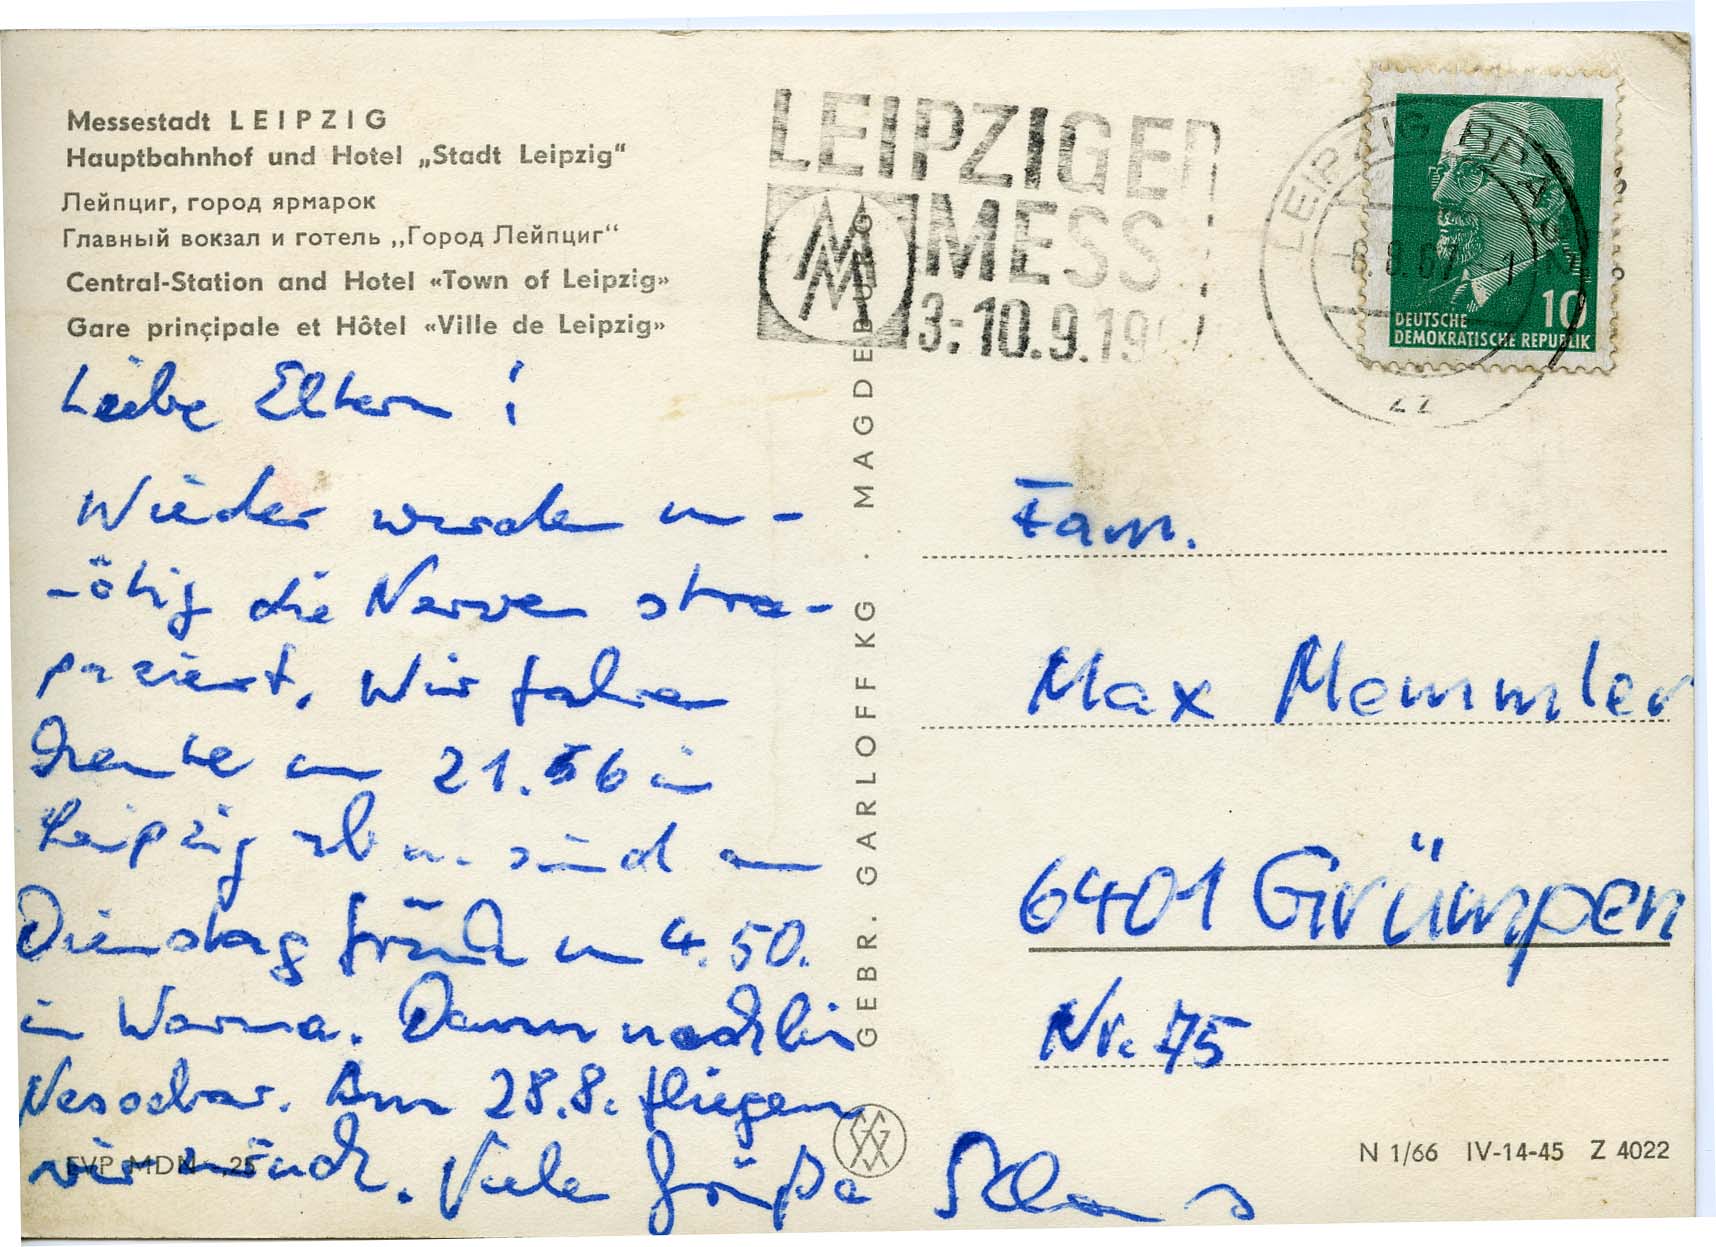 Messestadt LEIPZIG
Hauptbahnhof und Hotel „Stadt Leipzig“
Лейпциг, город ярмарок
Главный вокзал и готель „Город Лейпциг“
Central-Station and Hotel «Town of Leipzig»
Gare prinçipale et Hôtel «Ville de Leipzig»
Liebe Eltern!
Wieder werden un-
-ötig die Nerven stra-
paziert. Wir fahren
heute um 21.56 in
Leipzig ab u. sind am
Dienstag früh um 4.50.
in Warna. Dann noch bis
Nessebar. Am 28.8. fliegen
wir zurück. Viele Grüße Klaus
EVP MDN -.25
GEBR. GARLOFF KG · MAGDEBURG
LEIPZIGER
MESS
MM
3:10.9.19
LEIPZIG BPA
8.67
22
10
DEUTSCHE
DEMOKRATISCHE REPUBLIK
Fam.
Max Memmler
6401 Grümpen
Nr. 75
N 1/66 IV-14-45 Z 4022